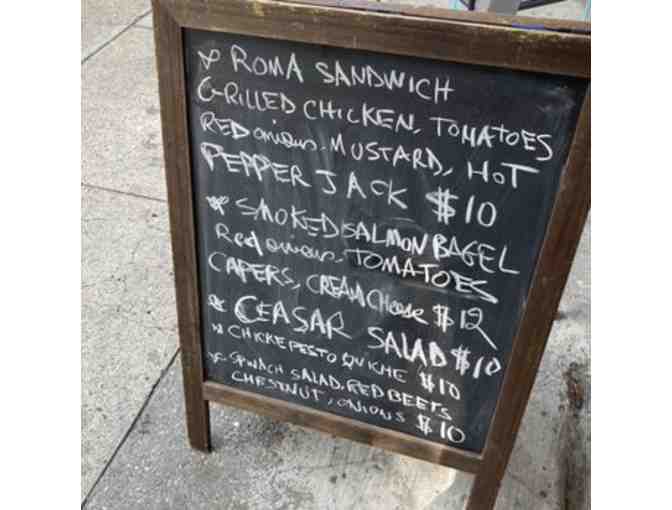 ROMA SANDWICH
GRILLED CHICKEN, TOMATOES
RED onions. MUSTARD, HOT
PEPPER JACK $10
SMOKED SALMON BAGEL
Red onions. TOMATOES
CAPERS, CREAM Cheese $12
CEASAR SALAD $10
CHICKE PESTO QUICHE $10
SPINACH SALAD. RED BEETS
CHESTNUT, ONIONS $10